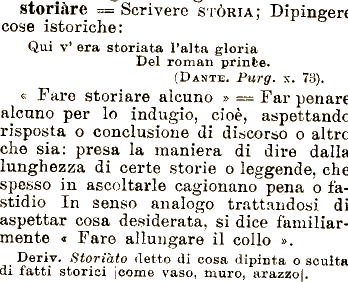 storiàre = Scrivere STÒRIA; Dipingere
cose istoriche:
Qui v' era storiata l'alta gloria
Del roman prinfe.
(DANTE. Purg. x. 73).
« Fare storiare alcuno » = Far penare
alcuno per lo indugio, cioè, aspettando
risposta o conclusione di discorso o altro
che sia: presa la maniera di dire dalla
lunghezza di certe storie o leggende, che
spesso in ascoltarle cagionano pena o fa-
stidio In senso analogo trattandosi di
aspettar cosa desiderata, si dice familiar-
mente « Fare allungare il collo ».
Deriv. Storiàto detto di cosa dipinta o sculta
di fatti storici |come vaso, muro, arazzo|.